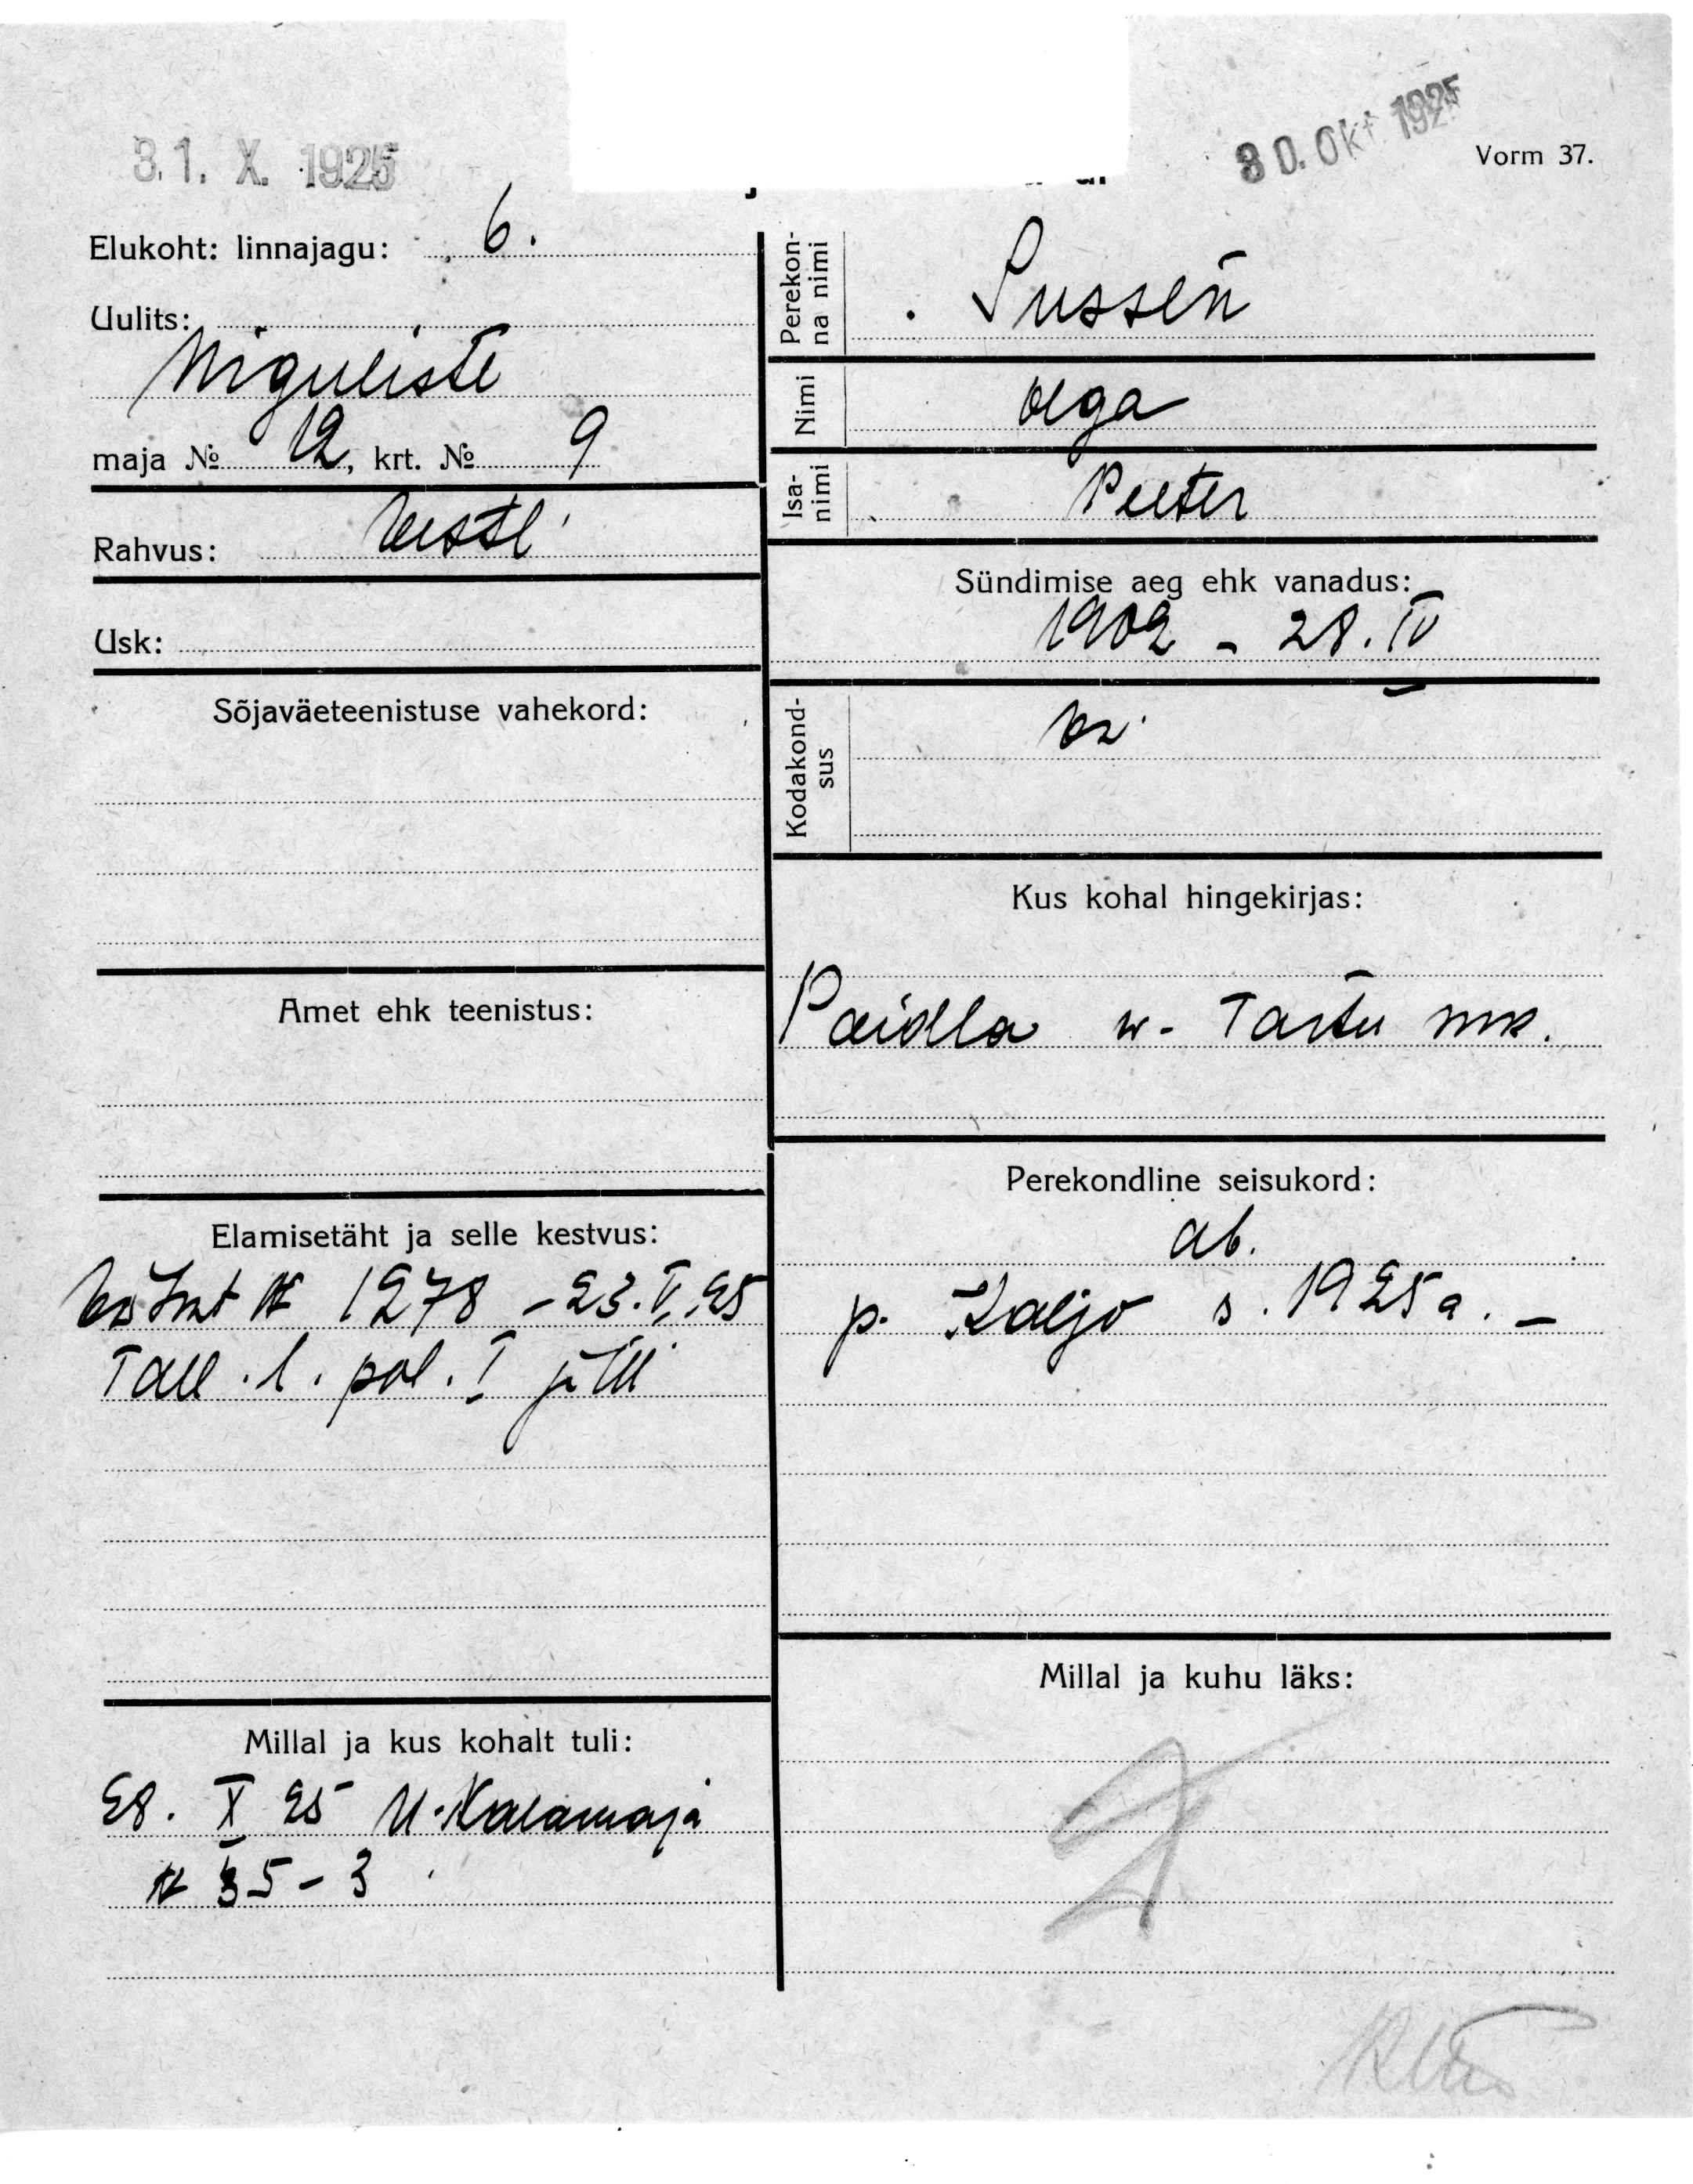 31. X. 1925
30. Okt 1925
Vorm 37.
Elukoht: linnajagu: 6.
Uulits:
Niguliste
maja № 12, krt. № 9
Rahvus: Eestl.
Usk:
Sõjaväeteenistuse vahekord:
Amet ehk teenistus:
Elamisetäht ja selle kestvus:
№ 1278 – 23.V.25
Tall. l. pol. I
Millal ja kus kohalt tuli:
28. X 25 U-Kalamaja
№ 35 – 3
Perekonna nimi
Sussen
Nimi
Olga
Isanimi
Peeter
Sündimise aeg ehk vanadus:
1902 – 28. IV
Kodakondsus
Kus kohal hingekirjas:
w. Tartu mk.
Perekondline seisukord:
ab.
p. Kaljo s. 1925 a. –
Millal ja kuhu läks: